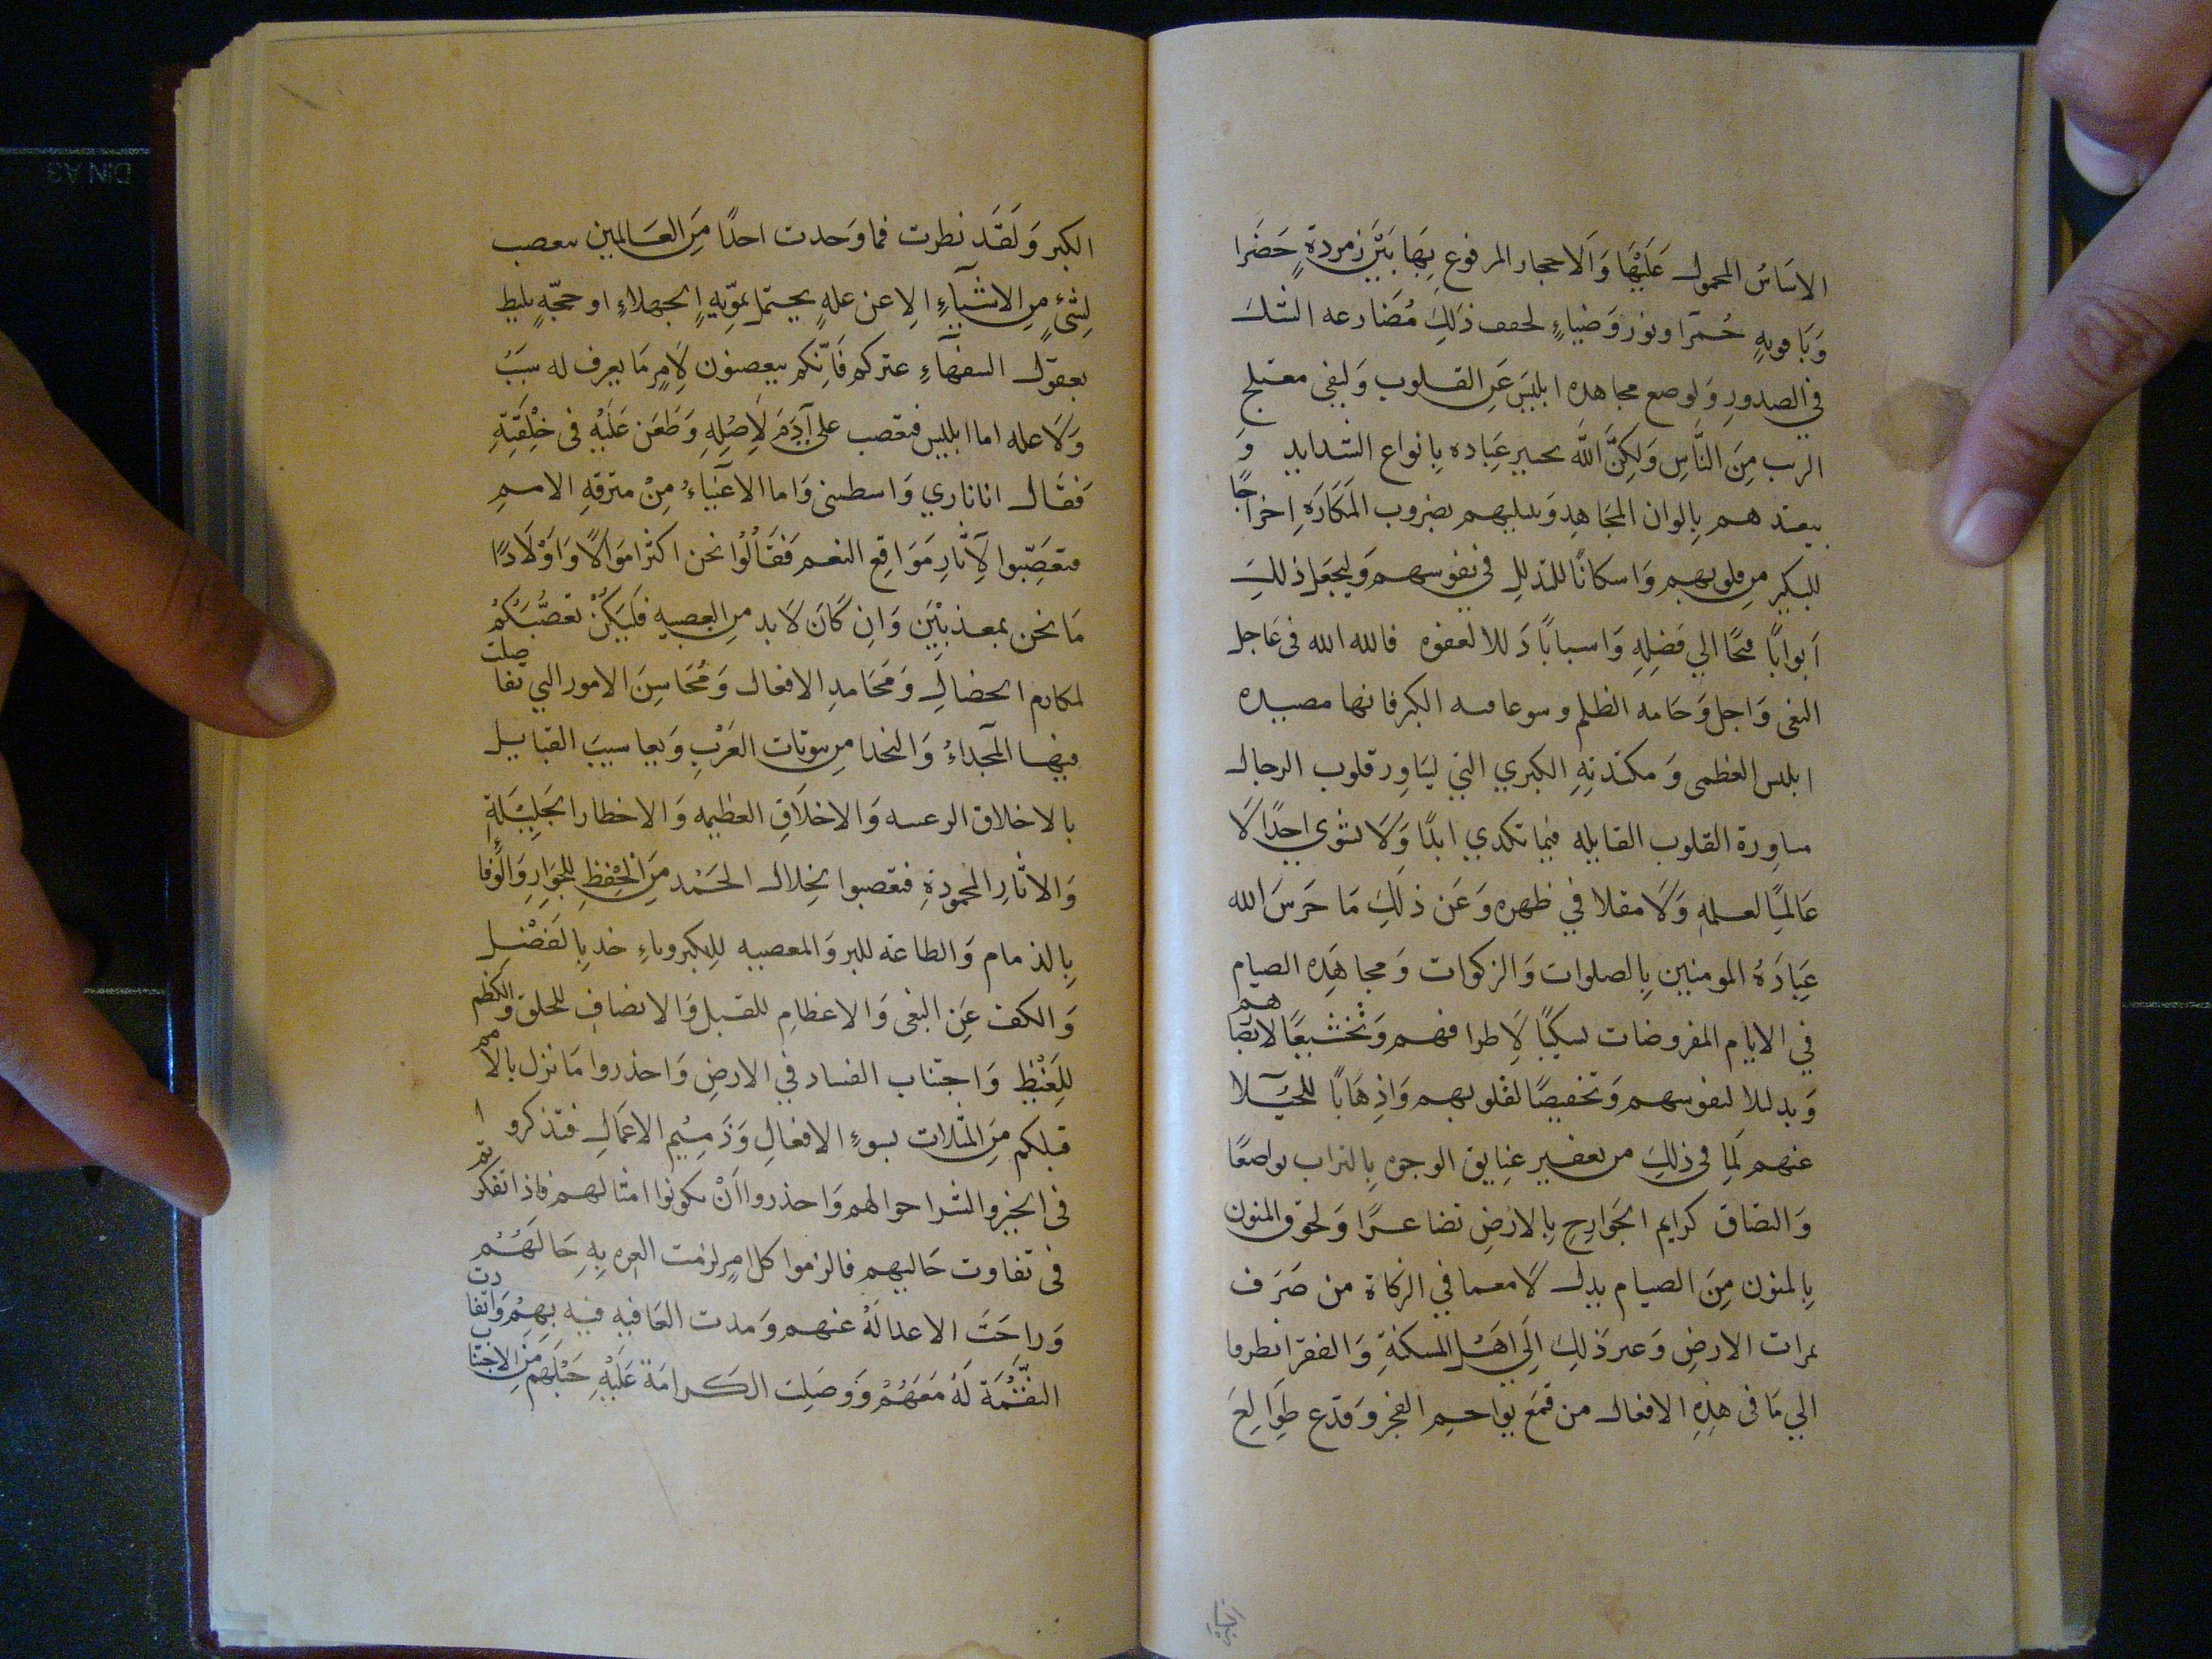 الاسَاسُ المحمول عَلَيْهَا وَالاحجار المرفوع بِهَا بَيْنَ زمردةٍ خَضرَا
وَيَاقوتهٍ حُمرَا ونور وَضِياءٍ لخفف ذلِكَ مُضَارعه الشك
في الصدورِ وَلوضع مجاهده ابليسَ عَنِ القلوب وَلنفى معتلج
الريب مِنَ النَّاسِ وَلكِنَّ اللَّه يختبر عِبَاده بِانواع الشدايد وَ
يتعبدهم بِالوان المجَاهدِ وَيبتليهم بضروب المَكَارَهِ اِخراجًا
للتكبر مِن قلوبهم وَاسكانًا للتذللِ في نفوسهم وَليجعَل ذلكَ
اَبوابًا فتحًا الي فَضلِهِ وَاسبابًا ذَللا لعفوه فالله الله في عَاجل
البغى وَاجل وَخَامه الظلم وسو عاقبه الكبر فانها مصيده
ابليس العظمى وَمكيدتِهِ الكبري التي تسَاوِر قلوب الرجال
مساورة القلوب القاتله فما تكدي ابدًا وَلا تشوي احدًا لَا
عَالمًا لعلمهِ وَلَا مقلا في طمره وَعَن ذلِكَ مَا حَرَسَ الله
عِبَادَهُ المومنين بِالصلوات وَالزكوات وَمجاهَدِه الصيام
في الايام المفروضات تسكينًا لِاطرافهم وَتخشيعًا لابصارهم
وَتذليلا لنفوسهم وَتخفيضًا لقلوبهم وَاذِهَابًا للخيَلا
عنهم لِمَا في ذلِكَ من تعفير عتايق الوجوه بِالتراب تواضعًا
وَالتصاق كرايم الجَوارِحِ بِالارَضِ تصاغرًا وَلحوق المتون
بِالمتون مِنَ الصيام تذللا معما في الزكاة من صَرَف
ثمرات الارضِ وَغير ذَلِكَ اِلَى اَهْلِ المسكنةِ وَالفقر انظروا
الي مَا في هذِهِ الافعال من قَمَع نواجم الفخر وَقدع طَوِالِعَ
الكبر وَلَقَد نظرت فما وَجدت احدًا مِنَ العَالمين يتعصب
لِشئٍ مِنِ الاشيآءِ الا عن علةٍ يحتمل تمويه الجهلاءِ او حجّةٍ تليط
بعقول السفهآءِ غيركم فَاِنّكم تتعصبون لِامرٍ مَا يعرف له سَببُ
وَلَا عله اما ابليس فتعصب على آدَمَ لِاصْلِهِ وَطَعَن عَلَيْهِ فى خِلْقَتِهِ
فَقَال انا ناري وَانت طينى وَاما الاغنيَاءُ مِنْ مترفهِ الاممِ
فتعَصّبوا لِآثَارِ مَوَاقِع النعم فَقَالُوا نحن اكثر امَوَالًا وَاوْلَادًا
مَا نحن بمعذبْينَ وَانِ كَانَ لَابد مِن العصبيه فَليَكُنْ تعصُّبَكُمْ
لمكارم الخصالِ وَمَحَامدِ الافعال وَمَحَاسِنَ الامور التي تفاضلت
فيها المجَداءُ وَالنجدا مِن بيوتات العَرَبِ وَيعاسيبَ القبايل
بالاخلاق الرغيبه وَالاخلَاقِ العظيمه وَالاخطار الجَليْلَةِ
وَالاثَارِ المحمودةِ فتعصبوا لِخلال الحَمْد مِنَ الحِفظِ للجوَارِ وَالوَفا
بِالذمام وَالطاعه للبر وَالمعصيه للكبروالاخذ بِالفَضْلِ
وَالكف عَنِ البغى وَالاعظامِ للقتل وَالانصافِ للخلق وَالكظم
للِغَيْظِ وَاجتناب الفساد في الارضِ وَاحذروا مَا نزل بالامم
قبلكم مِنَ المثلات بسوءِ الافعالِ وَذَمِيْمِ الاعمَالِ فتذكروا
فى الخير والشر احوالهم وَاحذروا اَنْ تكونوا امثالهم فاذِا تفكرتم
فى تفاوت حَاليهم فالزموا كل امرٍ لزمت العزه بِهِ حَالَهُمُ
وَراحَتَ الاعدا لَهُ عنهم وَمدت العَافيه فيه بِهِمْ وَانقادت
النّعْمَة لَهُ مَعَهُمْ وَوصَلِت الكَرامَة عَلَيْهِ حَبْلَهم مِنَ الاجتناب